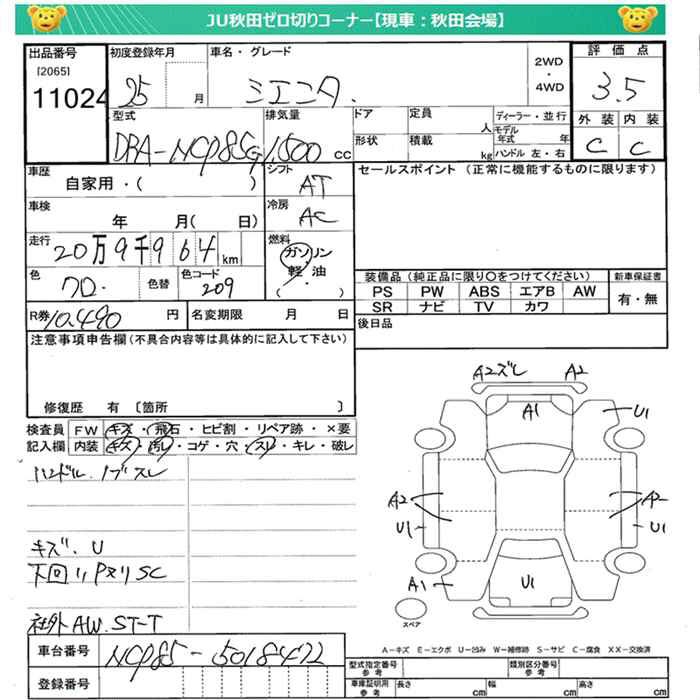 JU秋田ゼロ切りコーナー【現車：秋田会場】
出品番号
[2065]
11024
初度登録年月
25 月
車名・グレード
シエンタ.
2WD
・
4WD
評価点
3.5
型式
DBA-NCP85G
排気量
1,500 cc
ドア
形状
定員
人
積載
kg
ディーラー・並行
モデル
年式 年
ハンドル 左・右
外装 内装
C C
車歴
自家用・( )
シフト
AT
セールスポイント (正常に機能するものに限ります)
車検
年 月( 日)
冷房
AC
走行
20万9千964 km
燃料
ガソリン
軽・油
( )
色
色替
色コード
209
装備品 (純正品に限り〇をつけてください)
新車保証書
PS PW ABS エアB AW
SR ナビ TV カワ
有・無
R券 10,490 円
名変期限 月 日
後日品
注意事項申告欄 (不具合内容等は具体的に記入して下さい)
修復歴 有 〔箇所 〕
検査員
記入欄
FW キズ・飛石・ヒビ割・リペア跡・×要
内装 キズ・汚レ・コゲ・穴・スレ・キレ・破レ
ハンドル.ノブスレ
キズ.U
下回りPヌリSC
社外AW.ST-T
A2ズレ A2
A1
U1
A2
U1
A2
U1
A1
U1
スペア
A-キズ E-エクボ U-凹み W-補修跡 S-サビ C-腐食 XX-交換済
車台番号
NCP85-5018422
登録番号
型式指定番号
参考
類別区分番号
参考
車庫証明用
参考
長さ cm
幅 cm
高さ cm